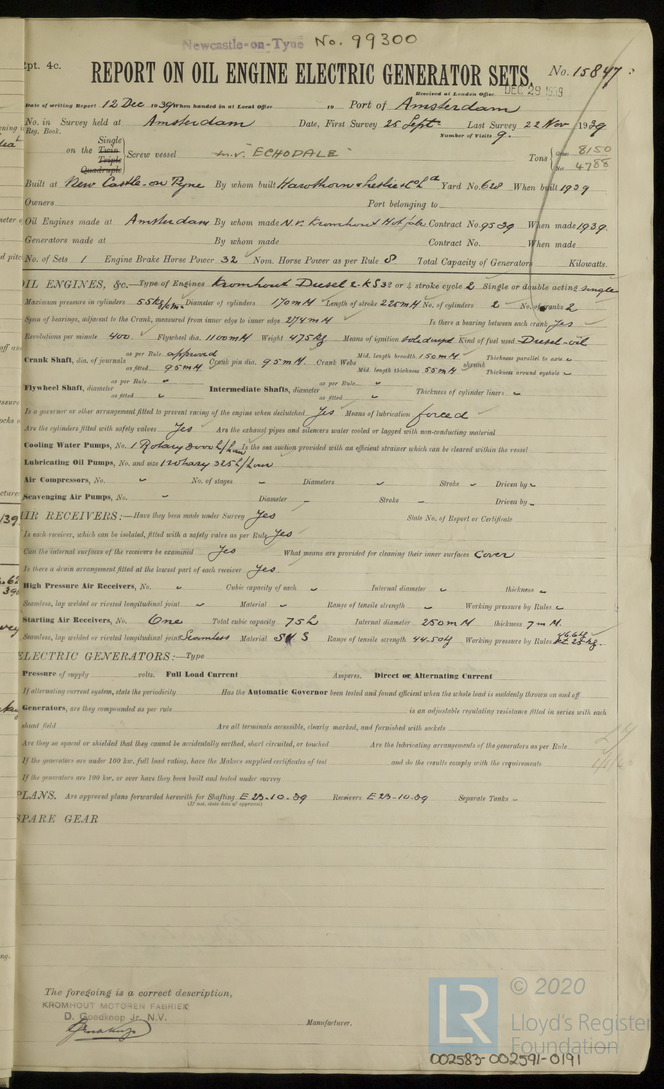 Newcastle-on-Tyne No. 99300
Rpt. 4c.
REPORT ON OIL ENGINE ELECTRIC GENERATOR SETS. No. 15847
Received at London Office DEC 29 1939
Date of writing Report 12 Dec 1939 When handed in at Local Office 19 Port of Amsterdam
No. in Survey held at Amsterdam Date, First Survey 25 Sept. Last Survey 22 Nov 1939
Reg. Book. Number of Visits 9.
on the Single Twin Triple Quadruple Screw vessel m.v. "ECHODALE" Tons Gross 8150 Net 4788
Built at New Castle-on Tyne By whom built Hawthorn Leslie & Co Ltd Yard No. 628 When built 1939
Owners Port belonging to
Oil Engines made at Amsterdam By whom made N.V. Kromhout Contract No. 9539 When made 1939.
Generators made at By whom made Contract No. When made
No. of Sets 1 Engine Brake Horse Power 32 Nom. Horse Power as per Rule 8 Total Capacity of Generators Kilowatts.
OIL ENGINES, &c.—Type of Engines Kromhout Diesel 2-KS32 or 4 stroke cycle 2 Single or double acting single
Maximum pressure in cylinders 55 kg/cm² Diameter of cylinders 170 mM Length of stroke 225 mM No. of cylinders 2 No. of cranks 2
Span of bearings, adjacent to the Crank, measured from inner edge to inner edge 274 mM Is there a bearing between each crank yes
Revolutions per minute 400. Flywheel dia. 1100 mM Weight 475 kg Means of ignition Kind of fuel used Diesel-oil
Crank Shaft, dia. of journals as per Rule approved as fitted 95 mM Crank pin dia. 95 mM. Crank Webs Mid. length breadth 150 mM Mid. length thickness 55 mM shrunk Thickness parallel to axis Thickness around eyehole
Flywheel Shaft, diameter as per Rule as fitted Intermediate Shafts, diameter as per Rule as fitted Thickness of cylinder liners
Is a governor or other arrangement fitted to prevent racing of the engine when declutched Yes Means of lubrication forced
Are the cylinders fitted with safety valves Yes Are the exhaust pipes and silencers water cooled or lagged with non-conducting material
Cooling Water Pumps, No. 1 Rotary 3000 L/hour Is the sea suction provided with an efficient strainer which can be cleared within the vessel
Lubricating Oil Pumps, No. and size 1 rotary 325 L/hour
Air Compressors, No. No. of stages Diameters Stroke Driven by
Scavenging Air Pumps, No. Diameter Stroke Driven by
AIR RECEIVERS:—Have they been made under Survey Yes State No. of Report or Certificate
Is each receiver, which can be isolated, fitted with a safety valve as per Rule Yes
Can the internal surfaces of the receivers be examined Yes What means are provided for cleaning their inner surfaces Cover
Is there a drain arrangement fitted at the lowest part of each receiver Yes.
High Pressure Air Receivers, No. Cubic capacity of each Internal diameter thickness
Seamless, lap welded or riveted longitudinal joint Material Range of tensile strength Working pressure by Rules
Starting Air Receivers, No. One Total cubic capacity 75 L Internal diameter 250 mM thickness 7 mM.
Seamless, lap welded or riveted longitudinal joint Seamless Material S M S Range of tensile strength 44.50 kg Working pressure by Rules
ELECTRIC GENERATORS:—Type
Pressure of supply volts. Full Load Current Amperes. Direct or Alternating Current
If alternating current system, state the periodicity Has the Automatic Governor been tested and found efficient when the whole load is suddenly thrown on and off
Generators, are they compounded as per rule is an adjustable regulating resistance fitted in series with each
shunt field Are all terminals accessible, clearly marked, and furnished with sockets
Are they so spaced or shielded that they cannot be accidentally earthed, short circuited, or touched Are the lubricating arrangements of the generators as per Rule
If the generators are under 100 kw. full load rating, have the Makers supplied certificates of test and do the results comply with the requirements
If the generators are 100 kw. or over have they been built and tested under survey
PLANS. Are approved plans forwarded herewith for Shafting E 23-10-39 Receivers E 23-10-39 Separate Tanks
(If not, state date of approval)
SPARE GEAR
The foregoing is a correct description,
KROMHOUT MOTOREN FABRIEK
D. Goedkoop Jr. N.V.
Manufacturer.
LR © 2020
Lloyd's Register
Foundation
002583-002591-0191